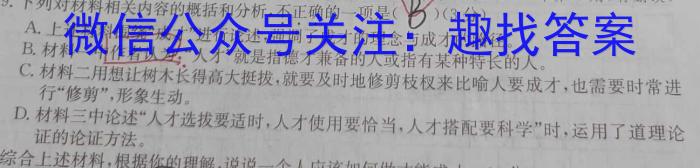 9. 下列对材料相关内容的概括和分析,不正确的一项是( B )(3分)
微信公众号关注：趣找答案
B. 材料一中作者认为,“人才”就是指德才兼备的人或指有某种特长的人。
C. 材料二用想让树木长得高大挺拔,就要及时地修剪枝杈来比喻人要成才,也需要时常进
行“修剪”,形象生动。
D. 材料三中论述“人才选拔要适时,人才使用要恰当,人才搭配要科学”时,运用了道理论
证的论证方法。
综合上述材料,根据你的理解,说说一个人应该如何做才能成